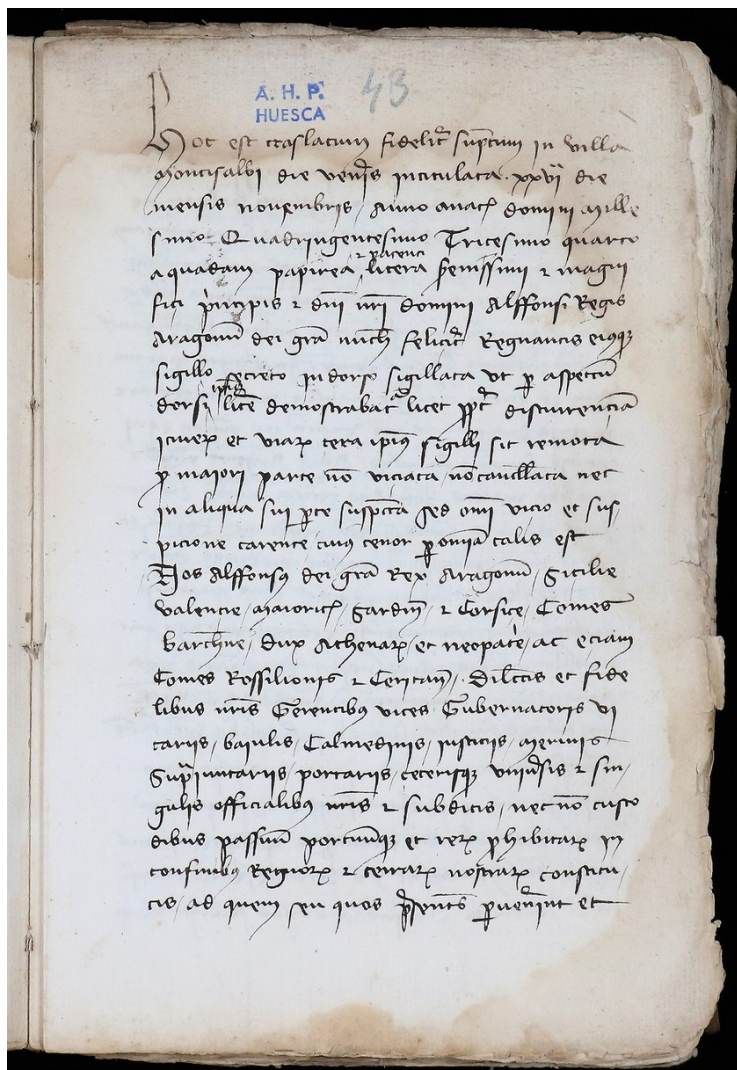 A. H. P.
HUESCA
43
Hoc est traslatum fidelit sumptum in villa
Montisalbi die ven̄is intitulata xxvi die
mensis novembris, Anno a nat̄ domini Mille
simo Quadringentesimo Tricesimo quarto
a quadam papirea ⁊ patenti litera sereniss̄imi ⁊ magni
fici p̀ncipis ⁊ dn̄i nr̄i domini Alffonsi Regis
Aragonū dei gr̄a nunc felicit̄ Regnantis eiusq̨
sigillo secreto in dorso sigillata ut p aspectū
dorsi ip̄ius lir̄e demostrabat̄ licet ppt̄ discurrenciā
itinerꝝ et viarꝝ cera ip̄ius sigilli sit remota
p maiori parte nō viciata, nō cancell̄ata nec
in aliqua sui p̄te suspecta sed om̄i vicio et sus,
picione carente cuius tenor p om̄ia talis est
Nos Alffonsus dei gr̄a Rex Aragonū, Sicilie
Valencie, Maioric̄, Sardin̄, ⁊ Corsice, Comes
barchn̄e, dux Athenarꝝ, et neopat̀e, ac eciam
Comes Rossilionis ⁊ Ceritan̄, Dil̄ctis et fide
libus nr̄is Gerentibus vices Gubernatoris vi
cariis, baiulis, Calmedinis, iusticiis, merinis
Supiunctariis, portariis, ceterisq̨ univ̄sis ⁊ sin,
gulis officialibus nr̄is ⁊ subditis, nec nō custo
dibus passuū portuūq̨ et rerꝝ phibitarꝝ in
confinibus Regnorꝝ ⁊ terrarꝝ nostrarꝝ constitu,
tis, ad quem seu quos p̄sentes pven̄int et